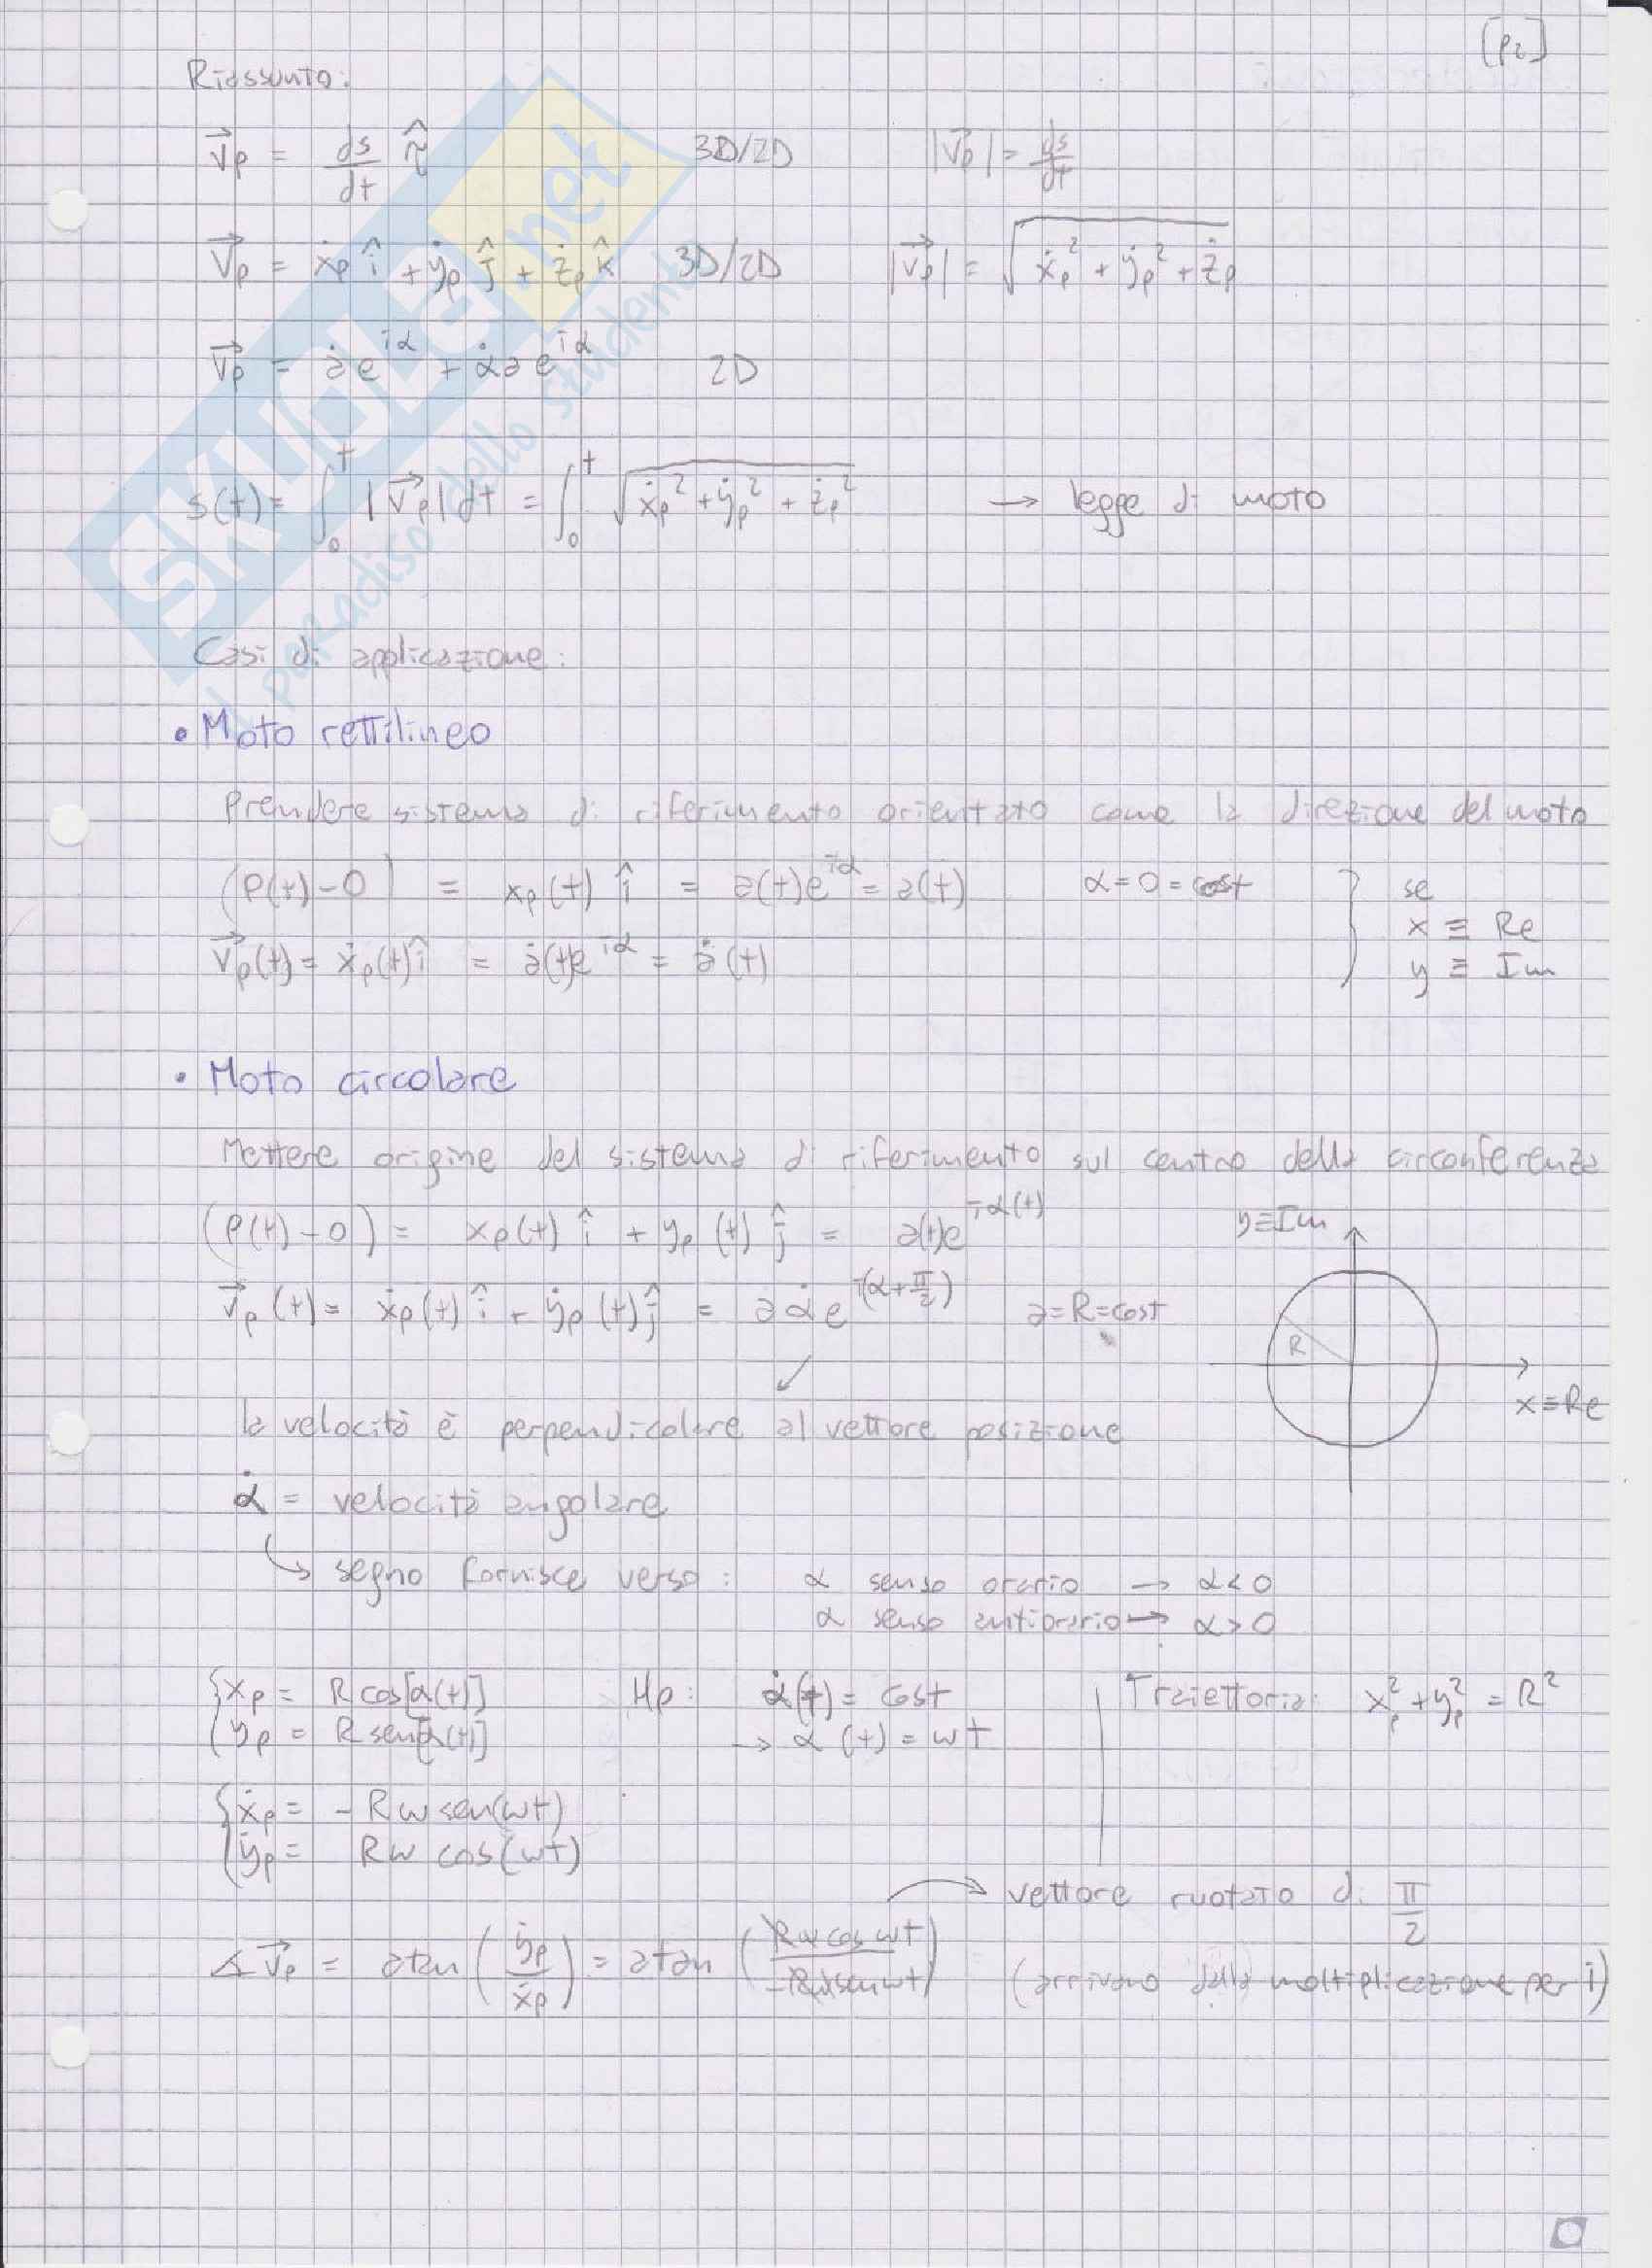 [p2]
Riassunto:
v⃗p = ds/dt τ̂    3D/2D    |v⃗p| = ds/dt
v⃗p = ẋp î + ẏp ĵ + żp k̂    3D/2D    |v⃗p| = √(ẋp² + ẏp² + żp)
v⃗p = ȧe^iα + α̇ae^iα    2D
s(t) = ∫₀ᵗ |v⃗p| dt = ∫₀ᵗ √(ẋp² + ẏp² + żp²)    → legge di moto
Casi di applicazione:
• Moto rettilineo
Prendere sistema di riferimento orientato come la direzione del moto
(P(t)-O) = xp(t) î = a(t)e^iα = a(t)    α=0=cost    } se
x ≡ Re
v⃗p(t) = ẋp(t) î = ȧ(t)e^iα = ȧ(t)    y ≡ Im
• Moto circolare
Mettere origine del sistema di riferimento sul centro della circonferenza
(P(t)-O) = xp(t) î + yp(t) ĵ = a(t)e^iα(t)    y≡Im
v⃗p(t) = ẋp(t) î + ẏp(t) ĵ = aα̇e^i(α+π/2)    a=R=cost    R
x≡Re
la velocità è perpendicolare al vettore posizione
α̇ = velocità angolare
↳ segno fornisce verso: α senso orario → α<0
α senso antiorario → α>0
{ xp = R cos[α(t)]    Hp: α̇(t) = cost    Traiettoria: xp² + yp² = R²
yp = R sen[α(t)]    → α(t) = ωt
{ ẋp = - Rω sen(ωt)
ẏp = Rω cos(ωt)
→ vettore ruotato di π/2
∡v⃗p = atan (ẏp/ẋp) = atan (Rω cos ωt/-Rω sen ωt)    (arrivano dalla moltiplicazione per i)
SKUOLA.net
il paradiso dello studente